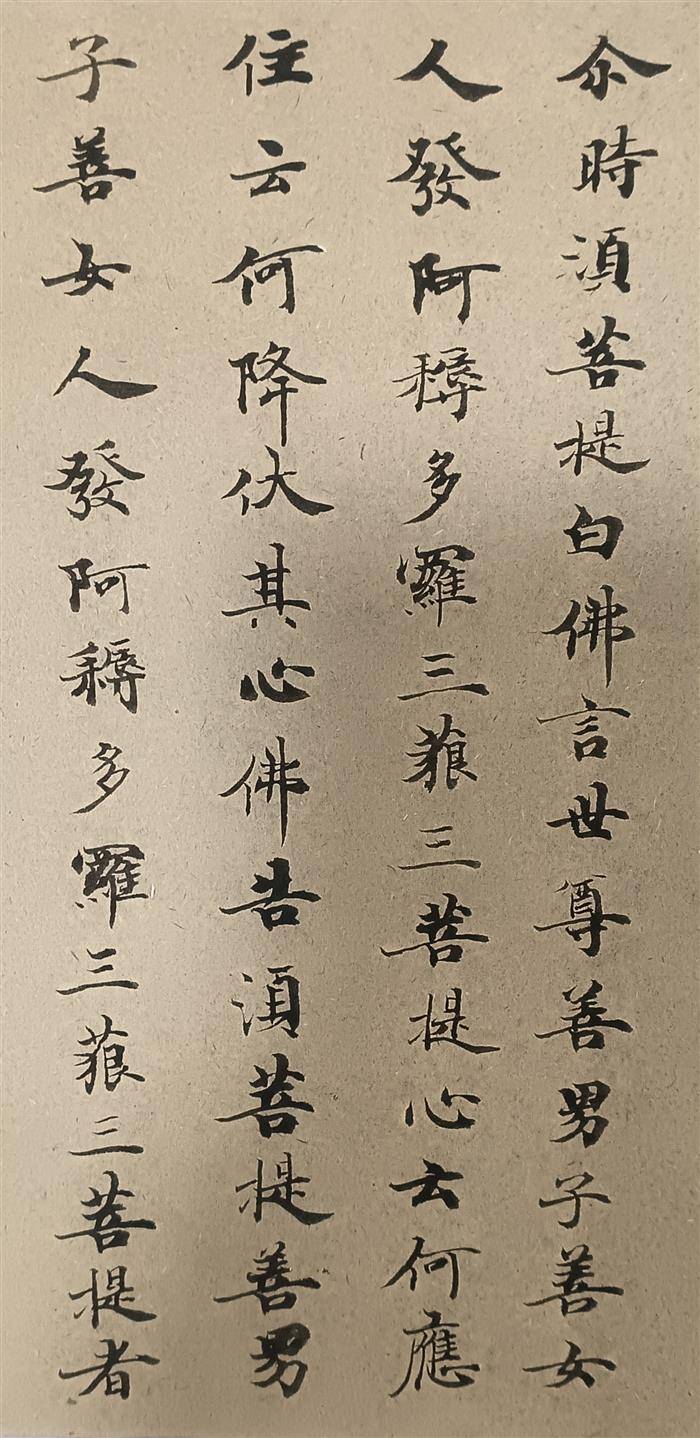 尒時湏菩提白佛言世尊善男子善女
人發阿耨多羅三藐三菩提心云何應
住云何降伏其心佛告湏菩提善男
子善女人發阿耨多羅三藐三菩提者